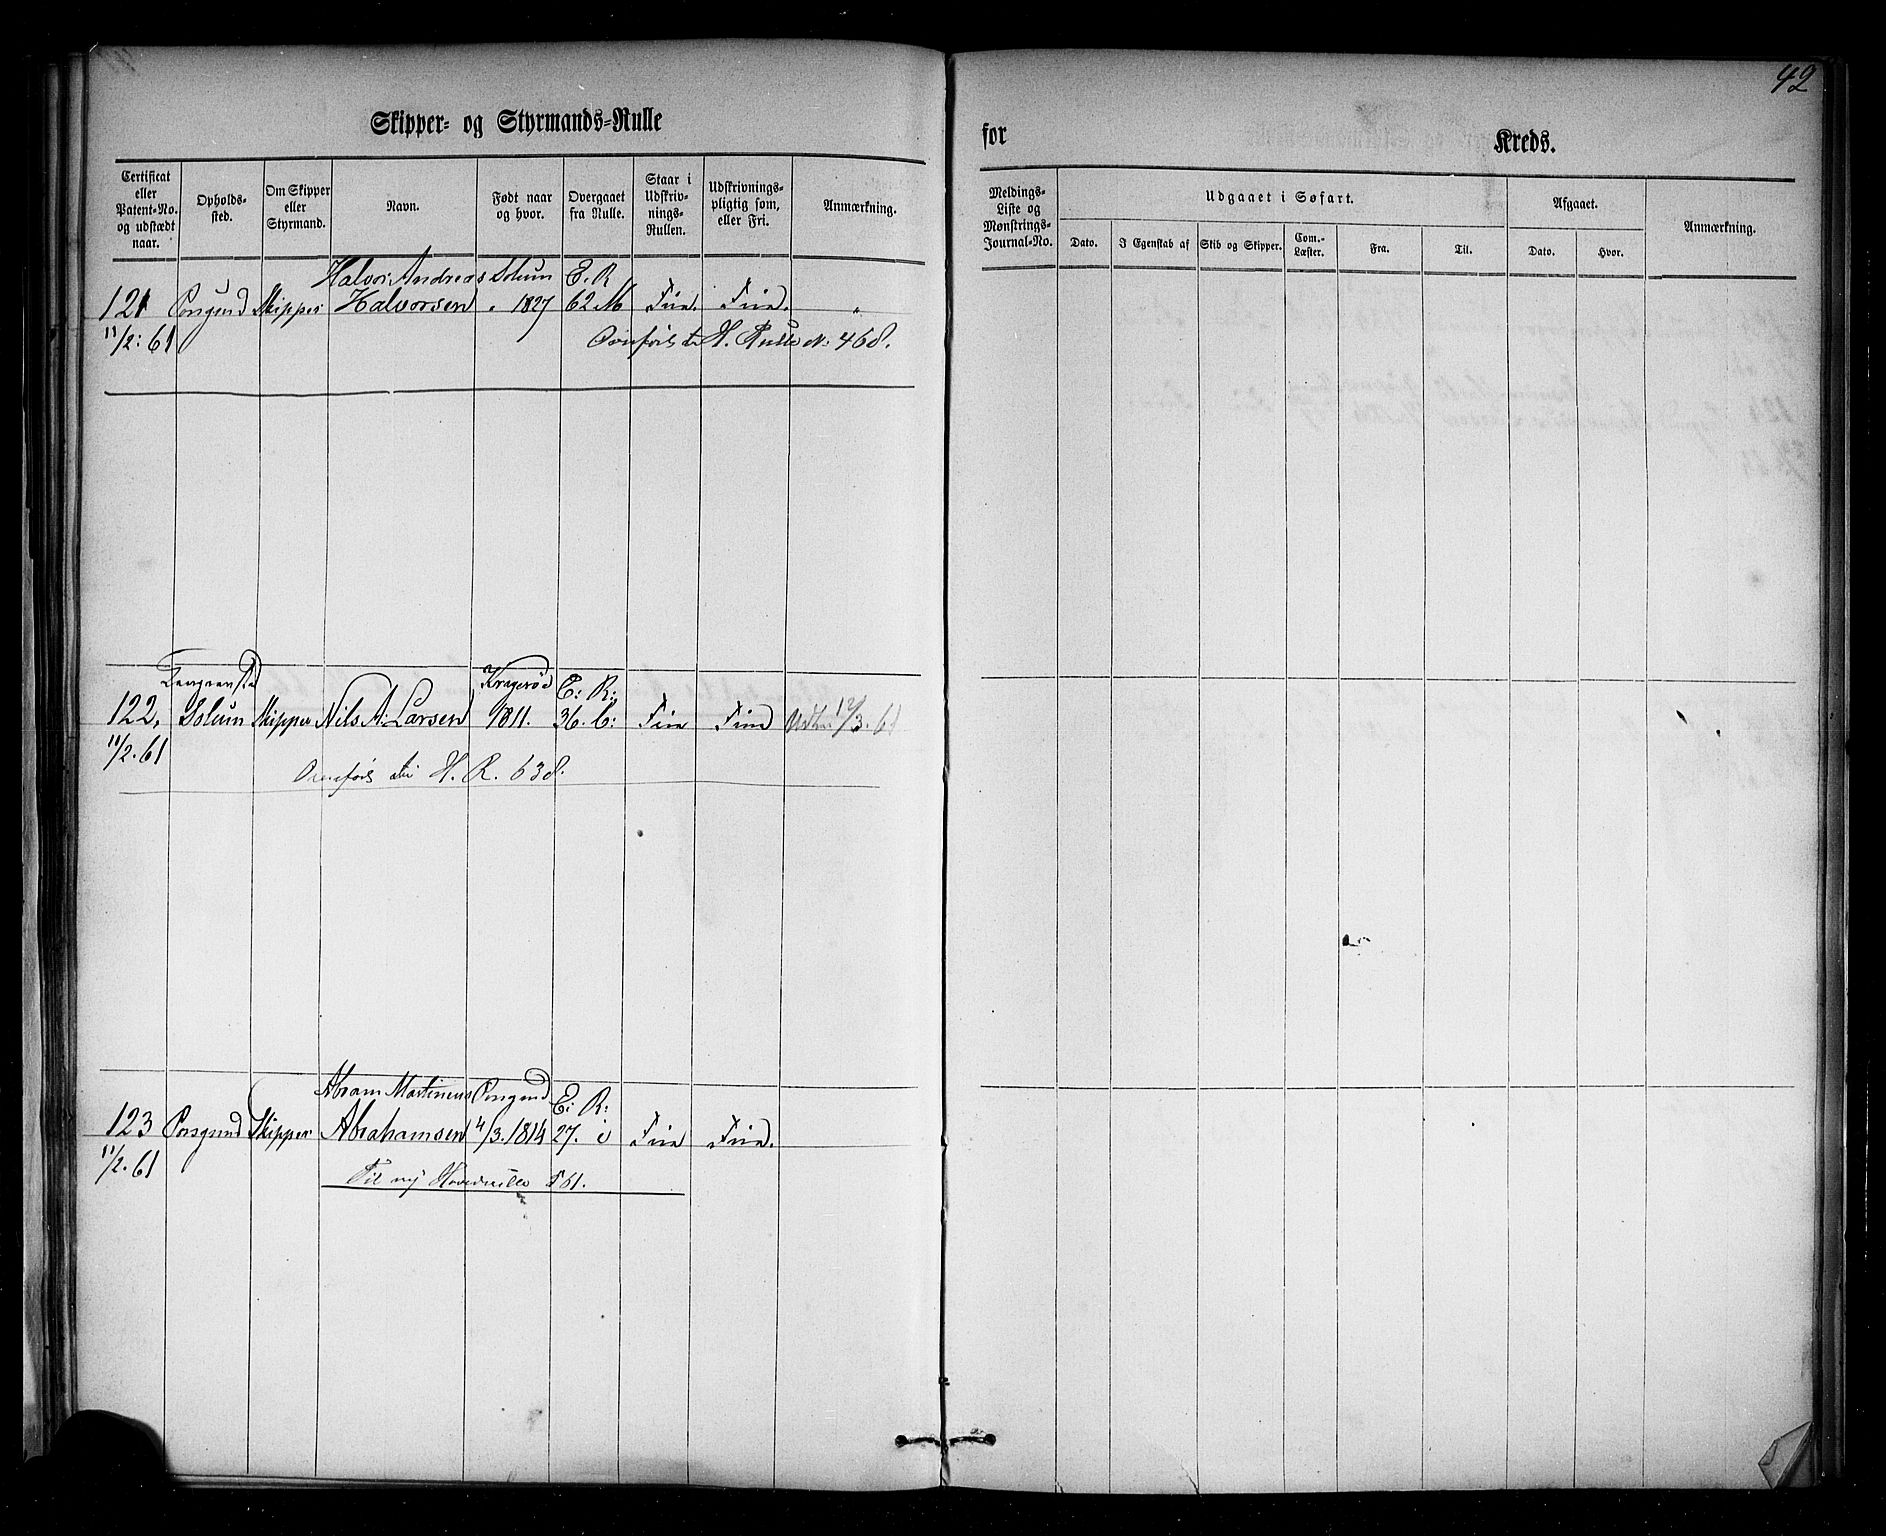 42
Skipper- og Styrmands-Rulle
for Kreds.
Certificat eller Patent-No. og udstædt naar.
Opholds-sted.
Om Skipper eller Styrmand.
Navn.
Født naar og hvor.
Overgaaet fra Rulle.
Staar i Udskriv-nings-Rullen.
Udskrivnings-pligtig som, eller Fri.
Anmærkning.
Meldings-Liste og Mønstrings-Journal-No.
Udgaaet i Søfart.
Dato.
I Egenskab af
Skib og Skipper.
Com.-Læster.
Fra.
Til.
Afgaaet.
Dato.
Hvor.
Anmærkning.
Halvor Andreas Solum E. R
121 Porsgrund Skipper Halvorsen 1827 62 M Frie. Frie. "
11/2: 61 H. Rulle No 468.
Kragerød E: R:
122, Solum Skipper Nils A: Larsen 1811. 36. b: Frie Frie 12/3. 61
11/2. 61 H. R. 638.
Abram Martinius Porsgrund E: R:
123 Porsgrund Skipper Abrahamsen 4/3. 1814 27. i Frie Frie.
11/2. 61 Til ny Hovedrulle 561.